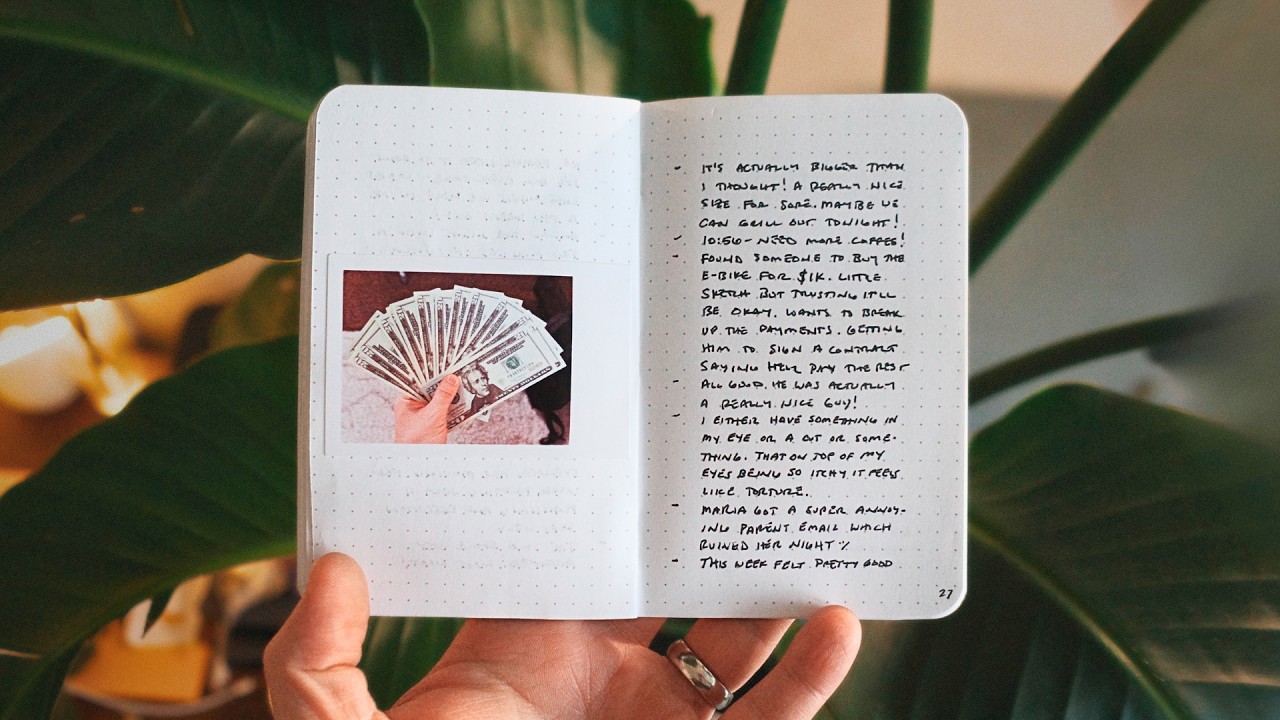 - IT'S ACTUALLY BIGGER THAN
I THOUGHT! A REALLY NICE
SIZE FOR SURE. MAYBE WE
CAN GRILL OUT TONIGHT!
- 10:56 - NEED MORE COFFEE!
- FOUND SOMEONE TO BUY THE
E-BIKE FOR $1K. LITTLE
SKETCH BUT TRUSTING IT'LL
BE OKAY. WANTS TO BREAK
UP THE PAYMENTS. GETTING
HIM TO SIGN A CONTRACT
SAYING HE'LL PAY THE REST
- ALL GOOD. HE WAS ACTUALLY
A REALLY NICE GUY!
- I EITHER HAVE SOMETHING IN
MY EYE OR A CUT OR SOME-
THING. THAT ON TOP OF MY
EYES BEING SO ITCHY IT FEELS
LIKE TORTURE.
- MARIA GOT A SUPER ANNOY-
ING PARENT EMAIL WHICH
RUINED HER NIGHT :/
- THIS WEEK FELT PRETTY GOOD
27